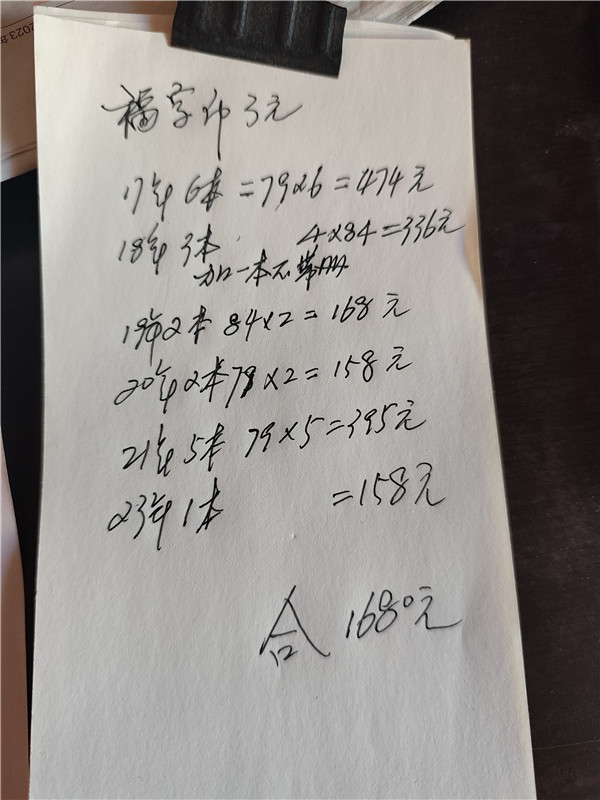 2023年
福字印 3元
17年 6本 =79×6=474元
18年 3本 4×84=336元
加一本不带册
19年2本 84×2=168元
20年2本79×2=158元
21年5本 79×5=395元
23年1本 =158元
合 1680元